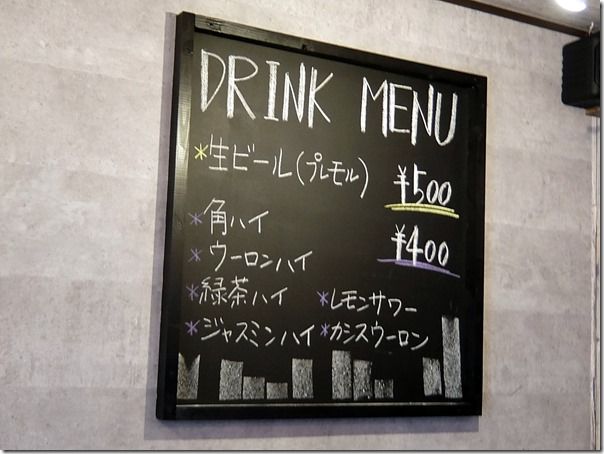 DRINK MENU
*生ビール(プレモル) ¥500
*角ハイ ¥400
*ウーロンハイ
*緑茶ハイ *レモンサワー
*ジャスミンハイ *カシスウーロン